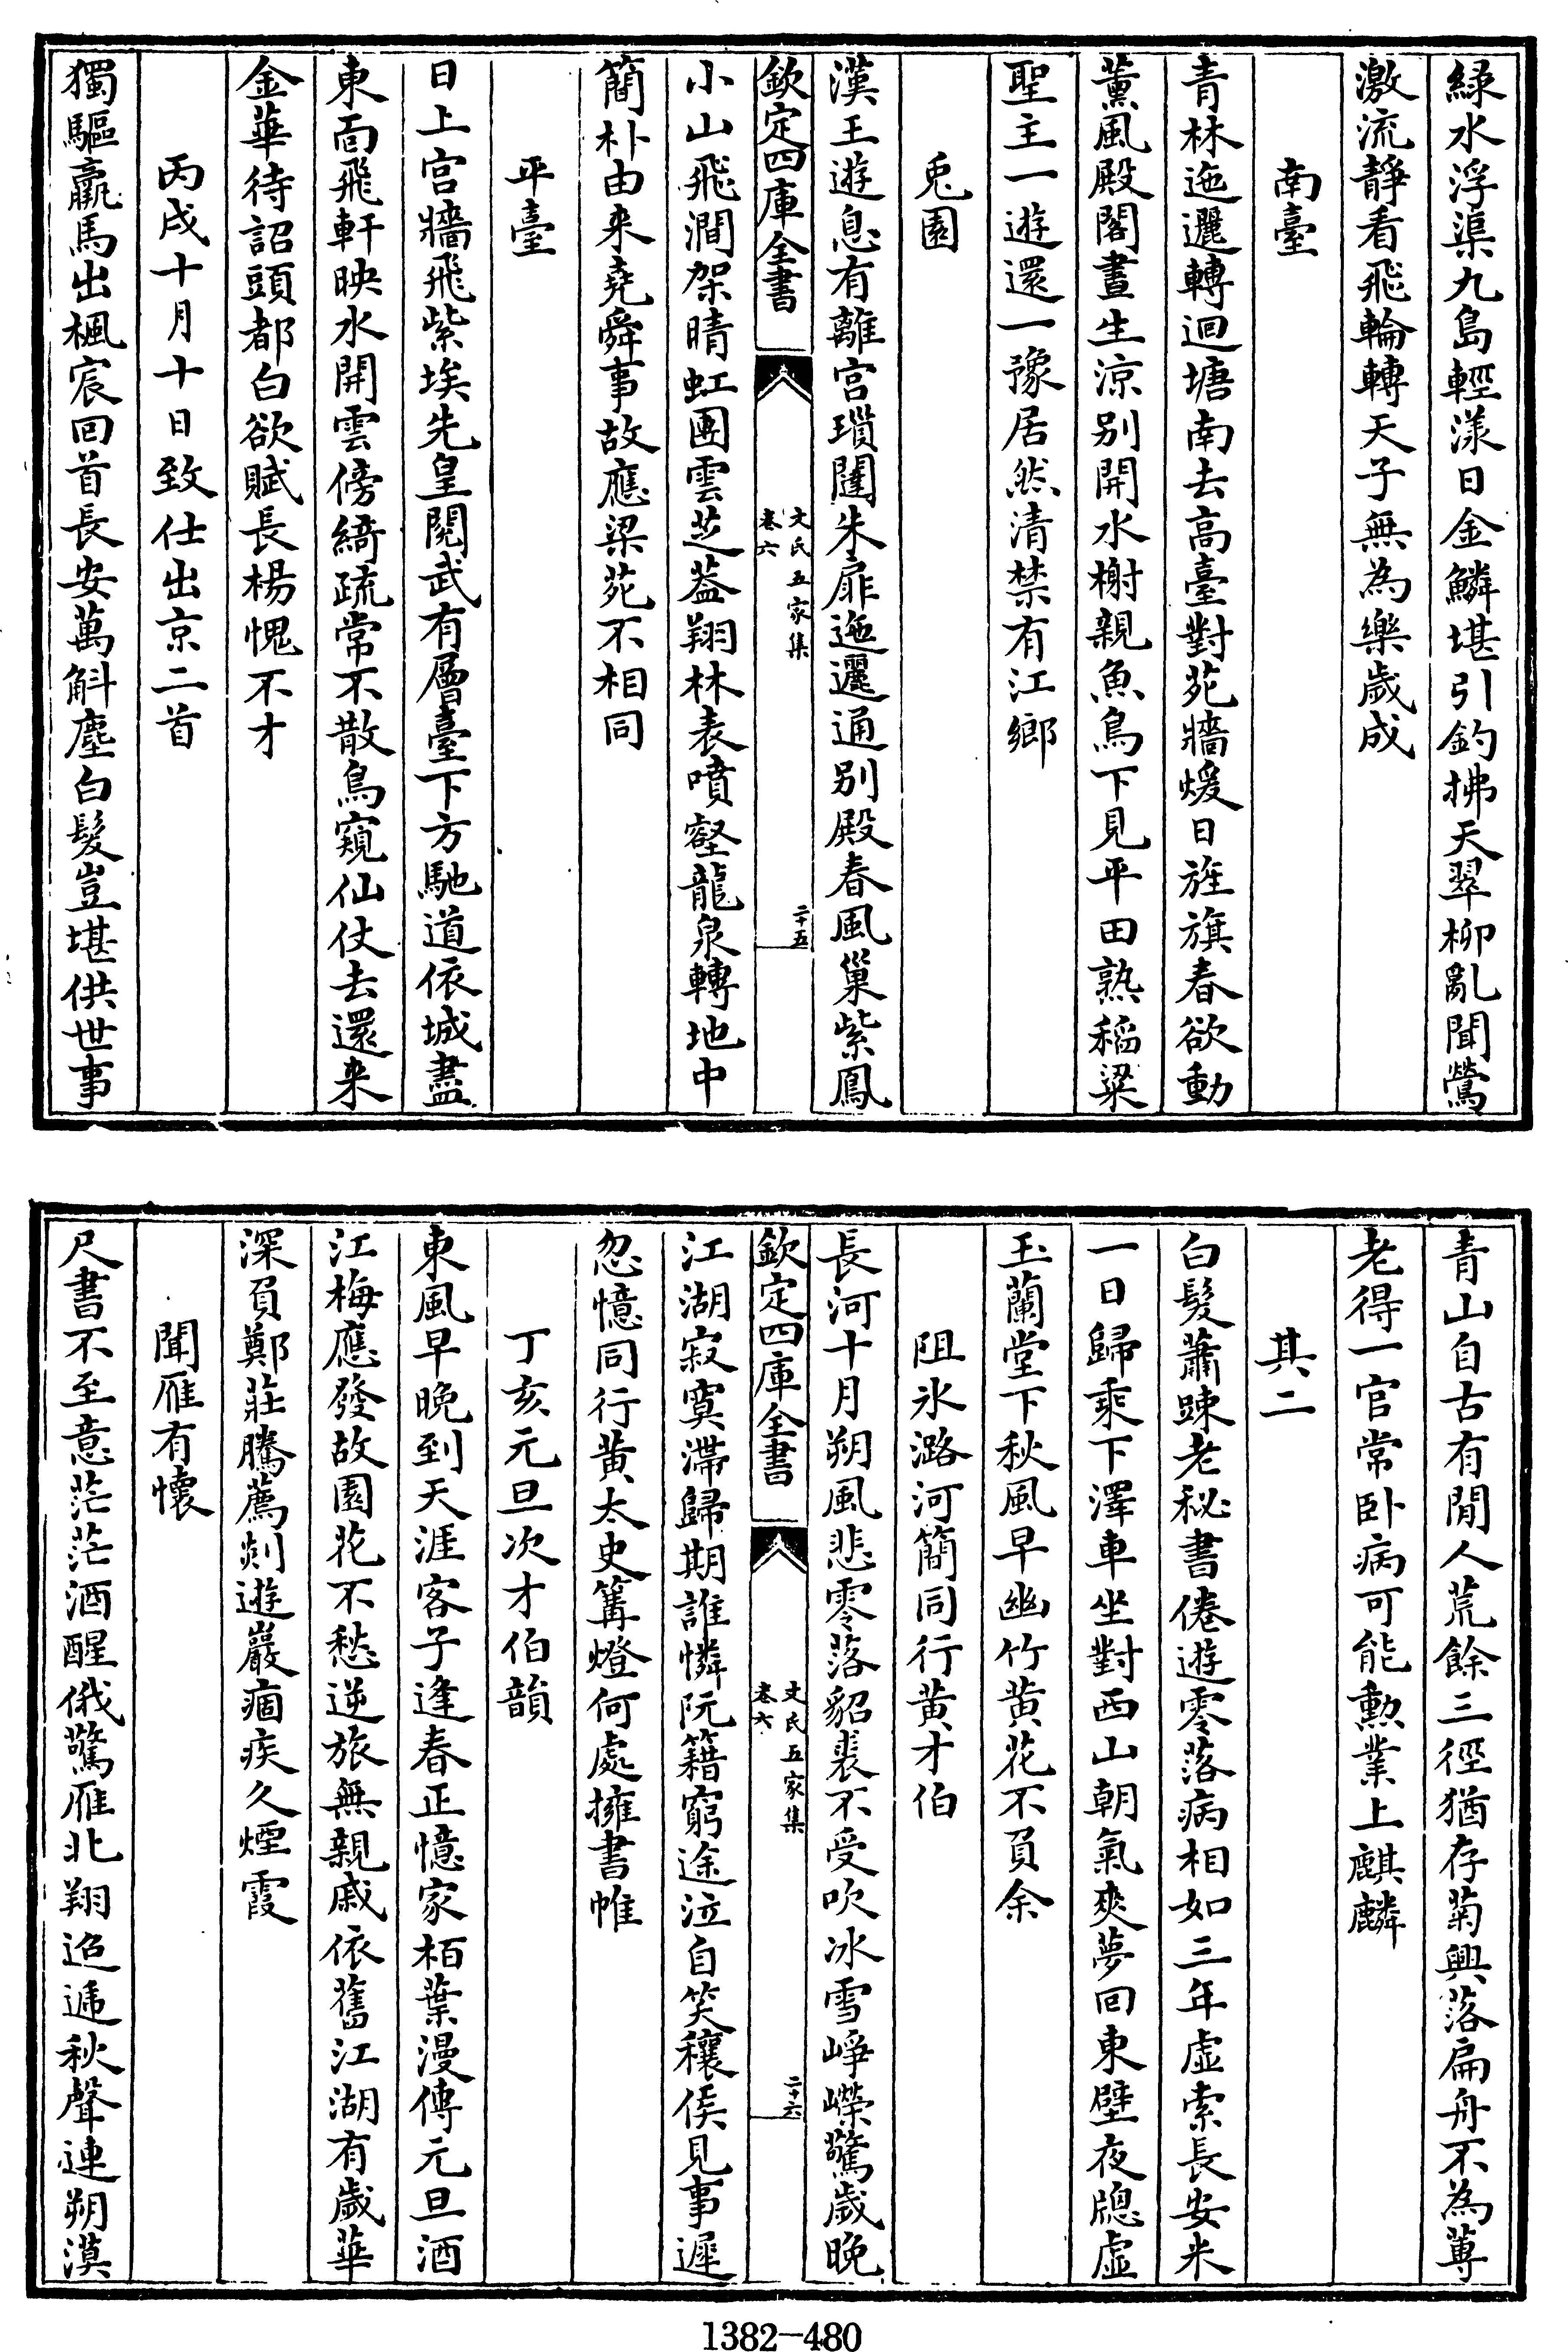 綠水浮渠九島輕漾日金鱗堪引釣拂天翠柳亂聞鶯
激流靜看飛輪轉天子無為樂歲成
南臺
青林迤邐轉迴塘南去高臺對苑牆煖日旌旗春欲動
薰風殿閣晝生涼別開水榭親魚鳥下見平田熟稻粱
聖主一遊還一豫居然清禁有江鄉
兎園
漢王遊息有離宮瑣闥朱扉迤邐通別殿春風巢紫鳳
欽定四庫全書
文氏五家集
卷六
二十五
小山飛澗架晴虹團雲芝蓋翔林表噴壑龍泉轉地中
簡朴由来堯舜事故應梁苑不相同
平臺
日上宮牆飛紫埃先皇閱武有層臺下方馳道依城盡
東面飛軒映水開雲傍綺疏常不散鳥窺仙仗去還来
金華待詔頭都白欲賦長楊愧不才
丙戌十月十日致仕出京二首
獨驅羸馬出楓宸回首長安萬斛塵白髮豈堪供世事
青山自古有閒人荒餘三徑猶存菊興落扁舟不為蓴
老得一官常卧病可能勲業上麒麟
其二
白髮蕭踈老秘書倦遊零落病相如三年虛索長安米
一日歸乘下澤車坐對西山朝氣爽夢回東壁夜牕虛
玉蘭堂下秋風早幽竹黄花不負余
阻氷潞河簡同行黄才伯
長河十月朔風悲零落貂裘不受吹冰雪崢嶸驚歲晚
欽定四庫全書
文氏五家集
卷六
二十六
江湖寂寞滯歸期誰憐阮籍窮途泣自笑穰侯見事遲
忽憶同行黄太史篝燈何處擁書帷
丁亥元旦次才伯韻
東風早晚到天涯客子逢春正憶家栢葉漫傳元旦酒
江梅應發故園花不愁逆旅無親戚依舊江湖有歲華
深負鄭莊騰薦剡遊巖痼疾久煙霞
聞雁有懷
尺書不至意茫茫酒醒俄驚雁北翔迢遞秋聲連朔漠
1382—480